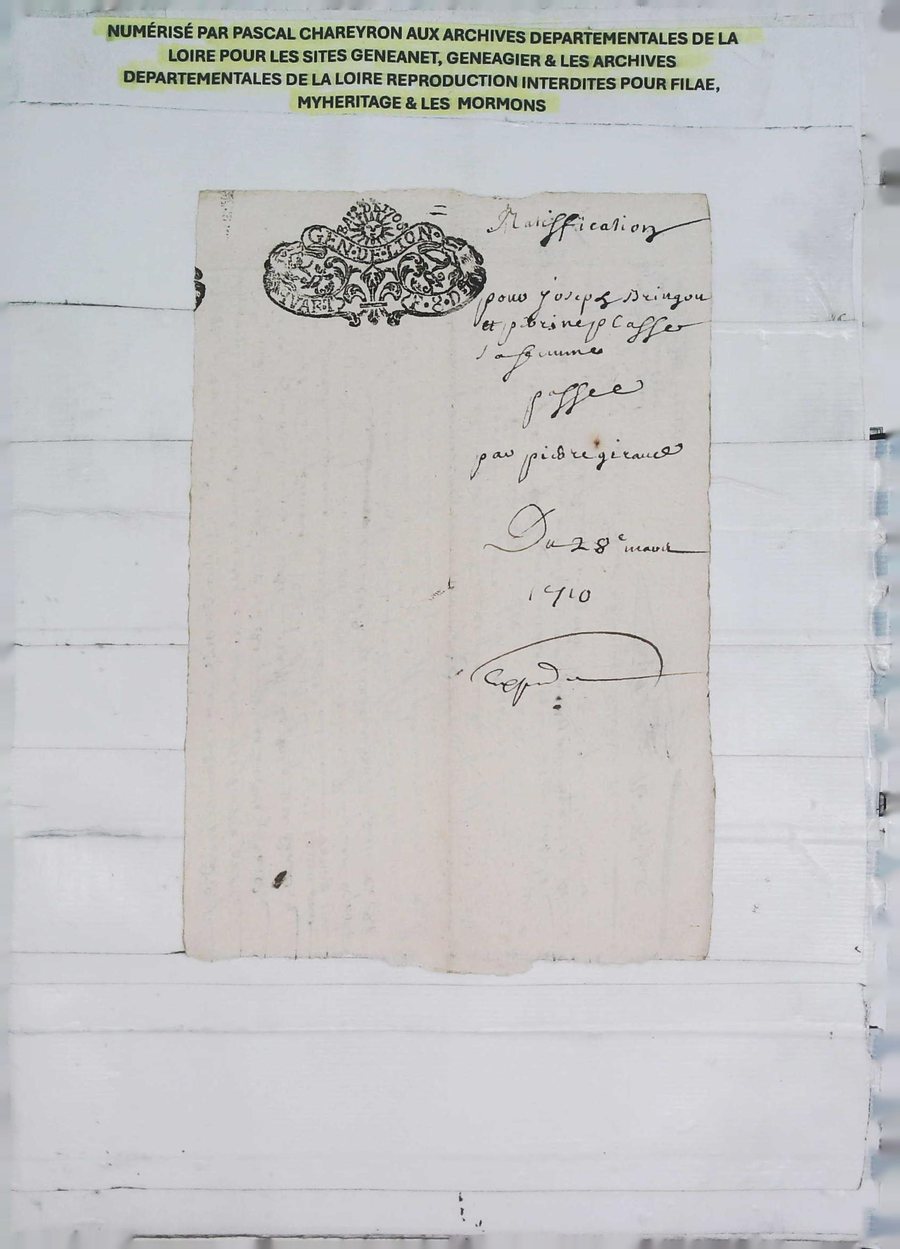 NUMÉRISÉ PAR PASCAL CHAREYRON AUX ARCHIVES DEPARTEMENTALES DE LA
LOIRE POUR LES SITES GENEANET, GENEAGIER & LES ARCHIVES
DEPARTEMENTALES DE LA LOIRE REPRODUCTION INTERDITES POUR FILAE,
MYHERITAGE & LES MORMONS
GEN·DE·LION·
Rattiffication
pour Joseph Bringou
et pierine plasse
sa femme
passee
par pierre giraud
Du 28e mars
1710